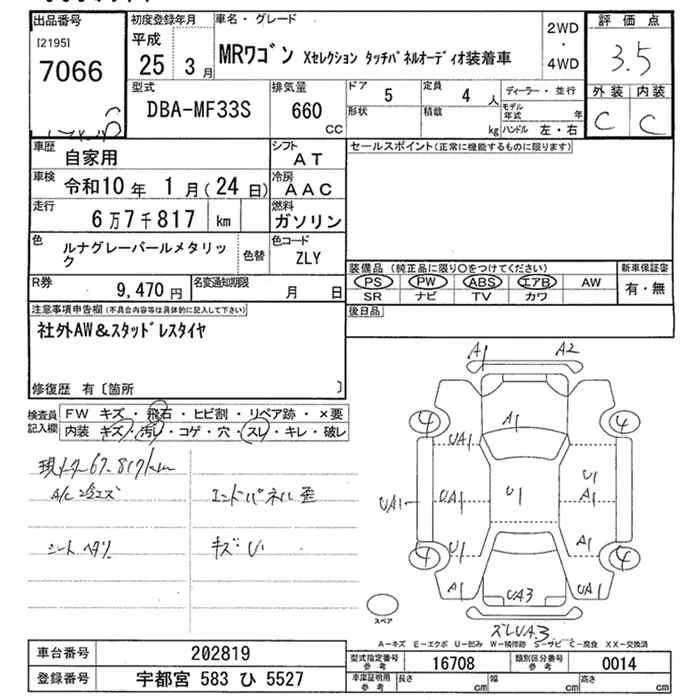 出品番号
[2195]
7066
初度登録年月
平成
25 3月
車名・グレード
MRワゴン Xセレクション タッチパネルオーディオ装着車
2WD
・
4WD
評価点
3.5
外装 内装
C C
型式
DBA-MF33S
排気量
660
CC
ドア
5
定員
4 人
形状
積載
kg
ディーラー・並行
モデル年式 年
ハンドル 左・右
車歴
自家用
シフト
AT
車検
令和10年 1月(24日)
冷房
AAC
走行
6万7千817 km
燃料
ガソリン
色
ルナグレーパールメタリック
色替
色コード
ZLY
R券
9,470円
名変通知期限
月 日
セールスポイント(正常に機能するものに限ります)
装備品(純正品に限り○をつけてください)
新車保証書
PS PW ABS エアB AW
SR ナビ TV カワ
有・無
後日品
注意事項申告欄(不具合内容等は具体的に記入して下さい)
社外AW&スタッドレスタイヤ
修復歴 有〔箇所 〕
検査員記入欄
FW キズ・飛石・ヒビ割・リペア跡・×要
内装 キズ・汚レ・コゲ・穴・スレ・キレ・破レ
現メーター67,817km
A/C 冷エズ
エンドパネル歪
シートヘタリ
キズU
A1 A2
A1
4 4
UA1
U1
UA1 UA1 U1 A1
U1 A1
4 4
A1 UA3 UA1
ズレUA3
スペア
A-キズ E-エクボ U-凹み W-補修跡 S-サビ C-腐食 XX-交換済
車台番号
202819
登録番号
宇都宮 583 ひ 5527
型式指定番号
参考
16708
類別区分番号
参考
0014
車庫証明用
参考
長さ cm
幅 cm
高さ cm